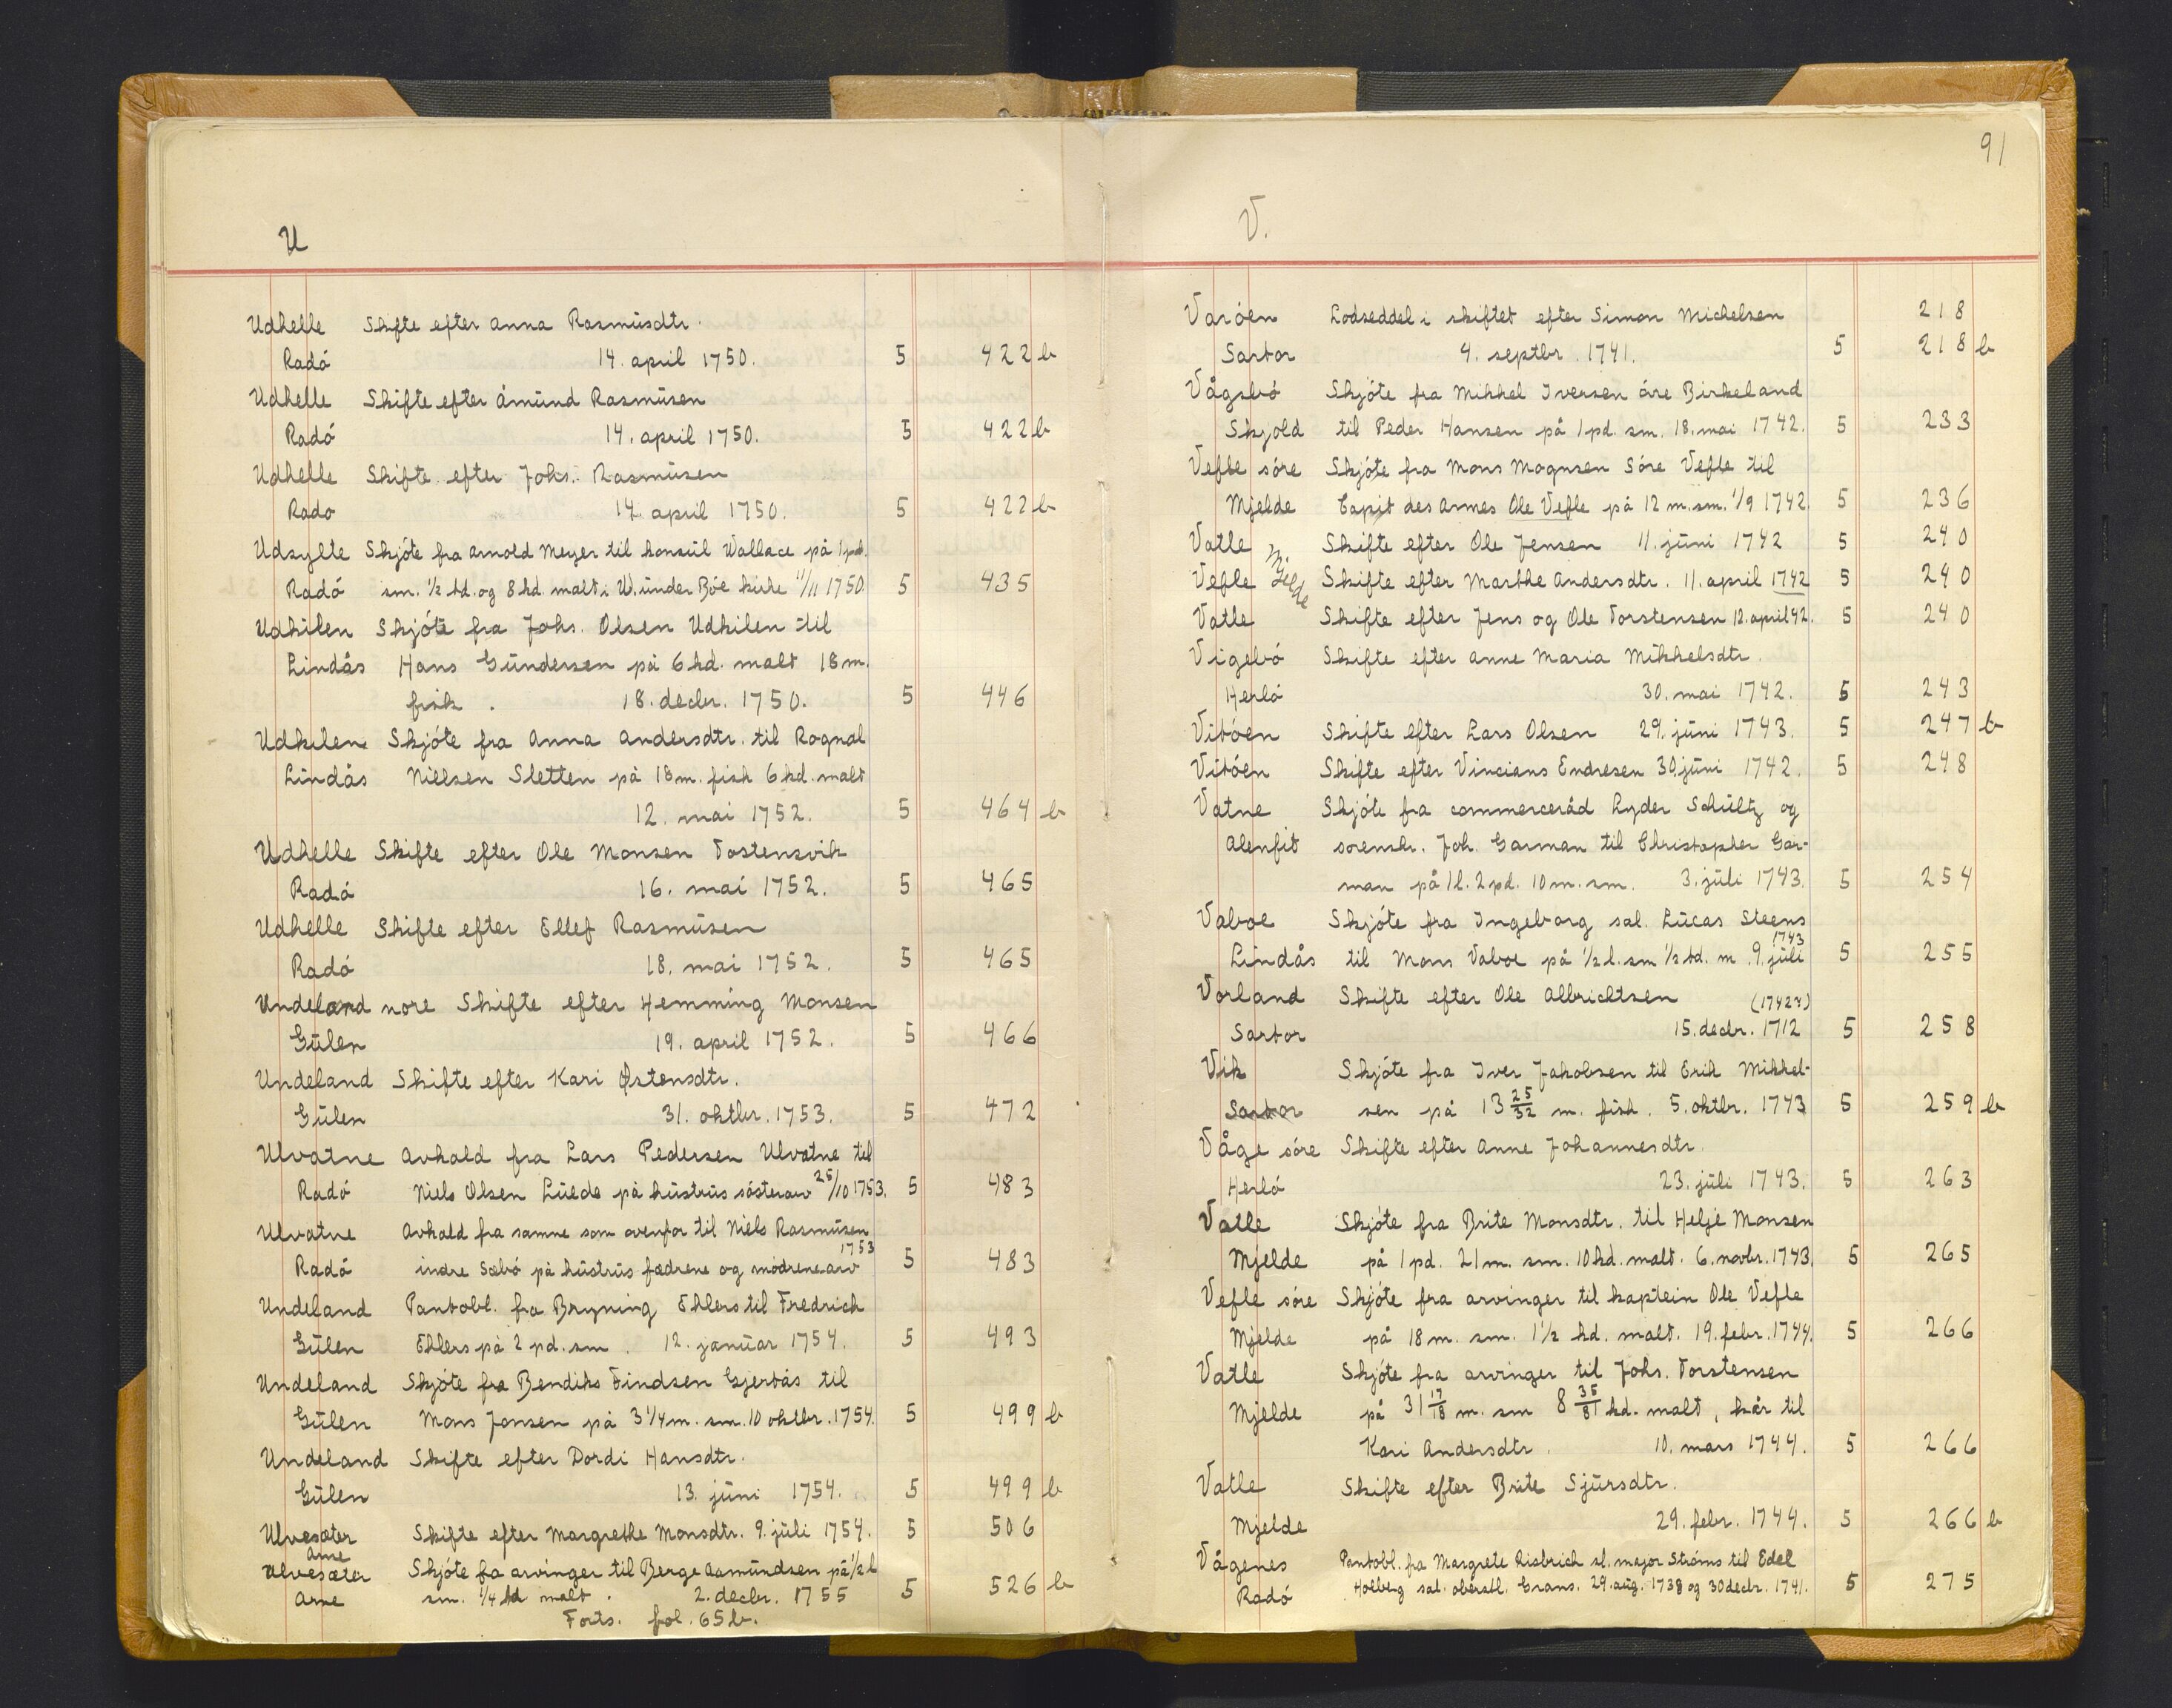 U
Udhelle Skifte efter Anna Rasmusdtr.
Radó 14. april 1750. 5 422 b
Udhelle Skifte efter Åmund Rasmusen
Radó 14. april 1750. 5 422 b
Udhelle Skifte efter Johs. Rasmusen
Rado 14. april 1750. 5 422 b
Udsylte Skjóte fra Arnold Meyer til konsul Wallace på 1 pd.
Radó sm. 1/2 td. og 8 kd. malt i W. under Bóe kirke 11/11 1750. 5 435
Udkilen Skjóte fra Johs. Olsen Udkilen til
Lindås Hans Gundersen på 6 kd. malt 18 m.
fisk. 18. decbr. 1750. 5 446
Udkilen Skjóte fra Anna Andersdtr. til Rognal
Lindås Nielsen Sletten på 18 m. fisk 6 kd. malt
12. mai 1752. 5 464 b
Udhelle Skifte efter Ole Monsen Tostensvik
Radó 16. mai 1752. 5 465
Udhelle Skifte efter Ellef Rasmusen
Radó 18. mai 1752. 5 465
Undeland nore Skifte efter Hemming Monsen
Gulen 19. april 1752. 5 466
Undeland Skifte efter Kari Østensdtr.
Gulen 31. oktbr. 1753. 5 472
Ulvatne Avkald fra Lars Pedersen Ulvatne til
Radó Niels Olsen Luede på hustrus sósterarv 25/10 1753. 5 483
Ulvatne Avkald fra samme som ovenfor til Niels Rasmusen
Radó indre Sæbó på hustrus fædrene og módrenearv 1753 5 483
Undeland Pantobl. fra Bryning Ehlers til Fredrich
Gulen Ehlers på 2 pd. sm. 12. januar 1754. 5 493
Undeland Skjóte fra Bendiks Findsen Gjertås til
Gulen Mons Jonsen på 3 1/4 m. sm. 10 oktbr. 1754. 5 499 b
Undeland Skifte efter Dordi Hansdtr.
Gulen 13. juni 1754. 5 499 b
Ulvesæter Skifte efter Margrethe Monsdtr. 9. juli 1754. 5 506
Arne
Ulvesæter Skjóte fra arvinger til Berge Aamundsen på 1/2 l
Arne sm. 1/4 td malt. 2. decbr. 1755 5 526 b
Forts. fol. 65 b.
91
V.
Varóen Lodseddel i skiftet efter Simon Michelsen 218
Sartor 4. septbr. 1741. 5 218 b
Vågsbó Skjóte fra Mikkel Iversen óvre Birkeland
Skjold til Peder Hansen på 1 pd. sm. 18. mai 1742. 5 233
Vefle sóre Skjóte fra Mons Mognsen Sóre Vefle til
Mjelde Capit des Armes Ole Vefle på 12 m. sm. 1/9 1742. 5 236
Vatle Skifte efter Ole Jensen 11. juni 1742 5 240
Mjelde
Vefle Skifte efter Marthe Andersdtr. 11. april 1742 5 240
Vatle Skifte efter Jens og Ole Torstensen 12. april 42. 5 240
Vigebó Skifte efter Anne Maria Mikkelsdtr.
Herló 30. mai 1742. 5 243
Vitóen Skifte efter Lars Olsen 29. juni 1743. 5 247 b
Vitóen Skifte efter Vincians Endresen 30. juni 1742. 5 248
Vatne Skjóte fra commerceråd Lyder Schultz og
Alenfit sorenskr. Joh. Garman til Christopher Gar-
man på 1 l. 2 pd. 10 m. sm. 3. juli 1743. 5 254
Vaboe Skjóte fra Ingeborg sal. Lucas Steens
Lindås til Mons Vaboe på 1/2 l. sm 1/2 td. m. 9. juli 1743 5 255
Vorland Skifte efter Ole Albrichtsen (1742?)
Sartor 15. decbr. 1712 5 258
Vik Skjóte fra Iver Jakobsen til Erik Mikkel-
Sartor sen på 13 25/32 m. fisk. 5. oktbr. 1743 5 259 b
Våge sóre Skifte efter Anne Johannesdtr.
Herló 23. juli 1743. 5 263
Vatle Skjóte fra Brite Monsdtr. til Helje Monsen
Mjelde på 1 pd. 21 m. sm. 10 kd. malt. 6. novbr. 1743. 5 265
Vefle sóre Skjóte fra arvinger til kaptein Ole Vefle
Mjelde på 18 m. sm. 1 1/2 kd. malt. 19. febr. 1744. 5 266
Vatle Skjóte fra arvinger til Johs. Torstensen
Mjelde på 31 17/18 m. sm 8 35/81 kd. malt, kår til
Kari Andersdtr. 10. mars 1744. 5 266
Vatle Skifte efter Brite Sjursdtr.
Mjelde 29. febr. 1744. 5 266 b
Vågenes Pantobl. fra Margrete Risbrich sl. major Stróms til Edel
Radó Holberg sal. oberstl. Grans. 29. aug. 1738 og 30 decbr. 1741. 5 275